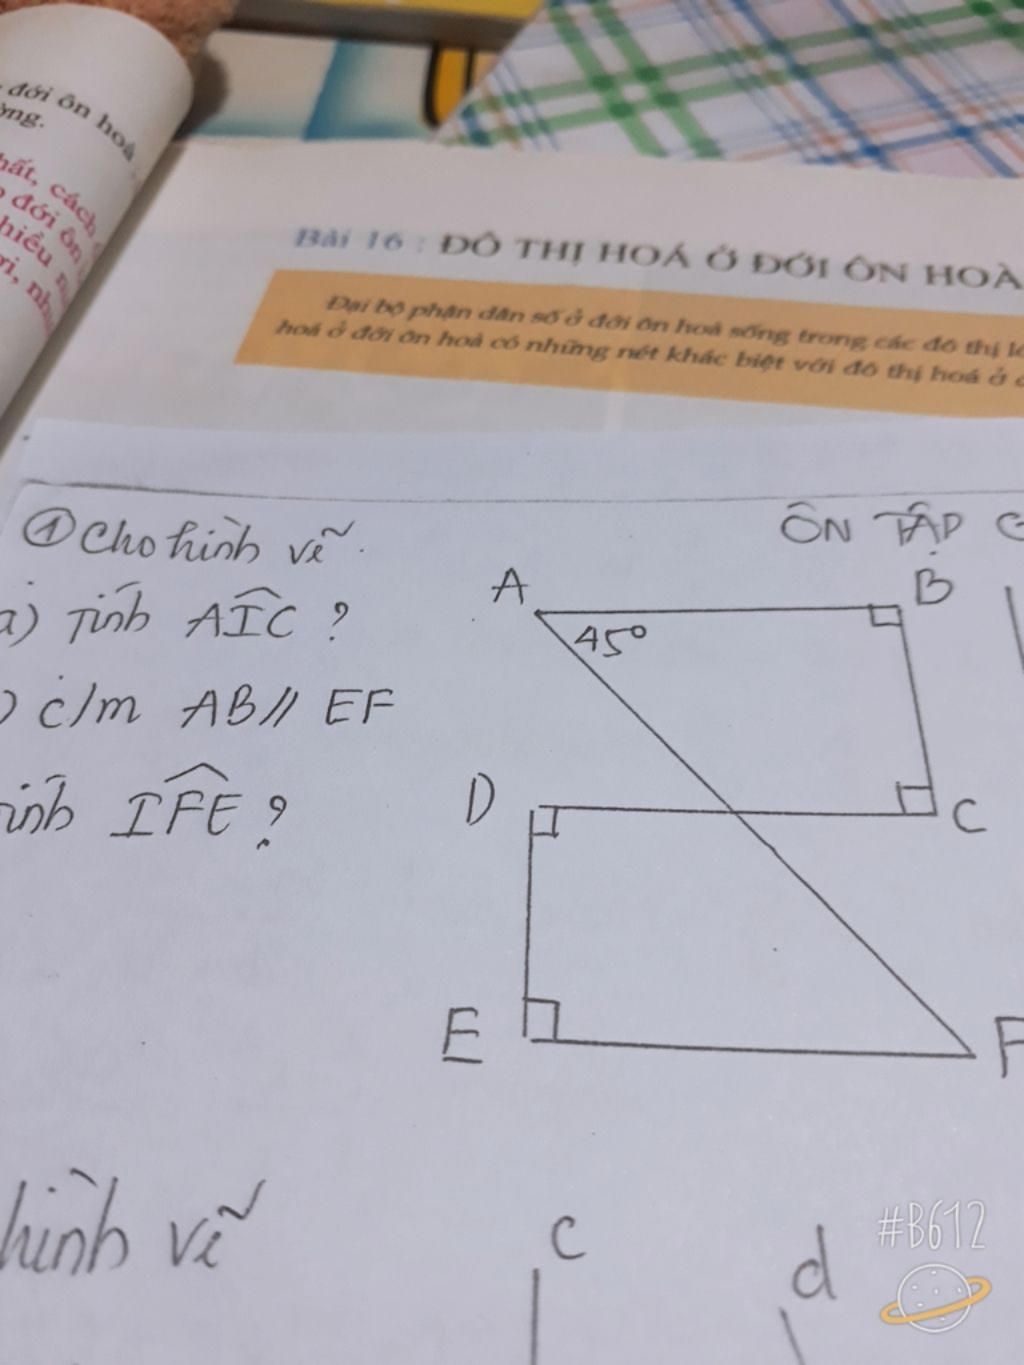 đới ôn hoà
hất, cách
đới ôn
Bài 16 : ĐÔ THỊ HOÁ Ở ĐỚI ÔN HOÀ
Đại bộ phận dân số ở đới ôn hoà sống trong các đô thị
hoá ở đới ôn hoà có những nét khác biệt với đô thị hoá ở
ÔN TẬP
① Cho hình vẽ.
a) Tính AIC ?
) c/m AB // EF
ính IFE ?
A
B
45°
D
C
E
F
hình vẽ
c
d
#B612